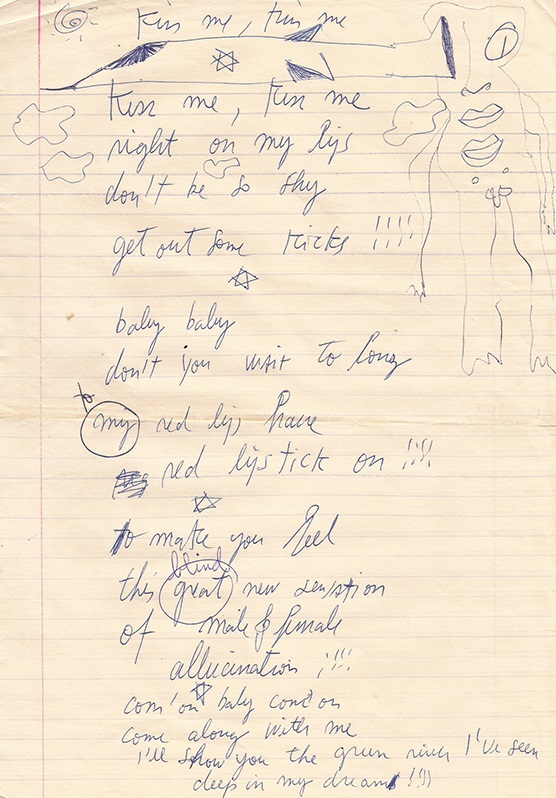 Kiss me, Kiss me
1
Kiss me, Kiss me
right on my lips
don't be so shy
get out some kicks !!!!
baby baby
don't you wait to long
my red lips have
red lipstick on !!!!
to make you feel
blind
this great new sensation
of male & female
allucination !!!!
com'on baby com'on
come along with me
I'll show you the green river I've seen
deep in my dreams !!!!